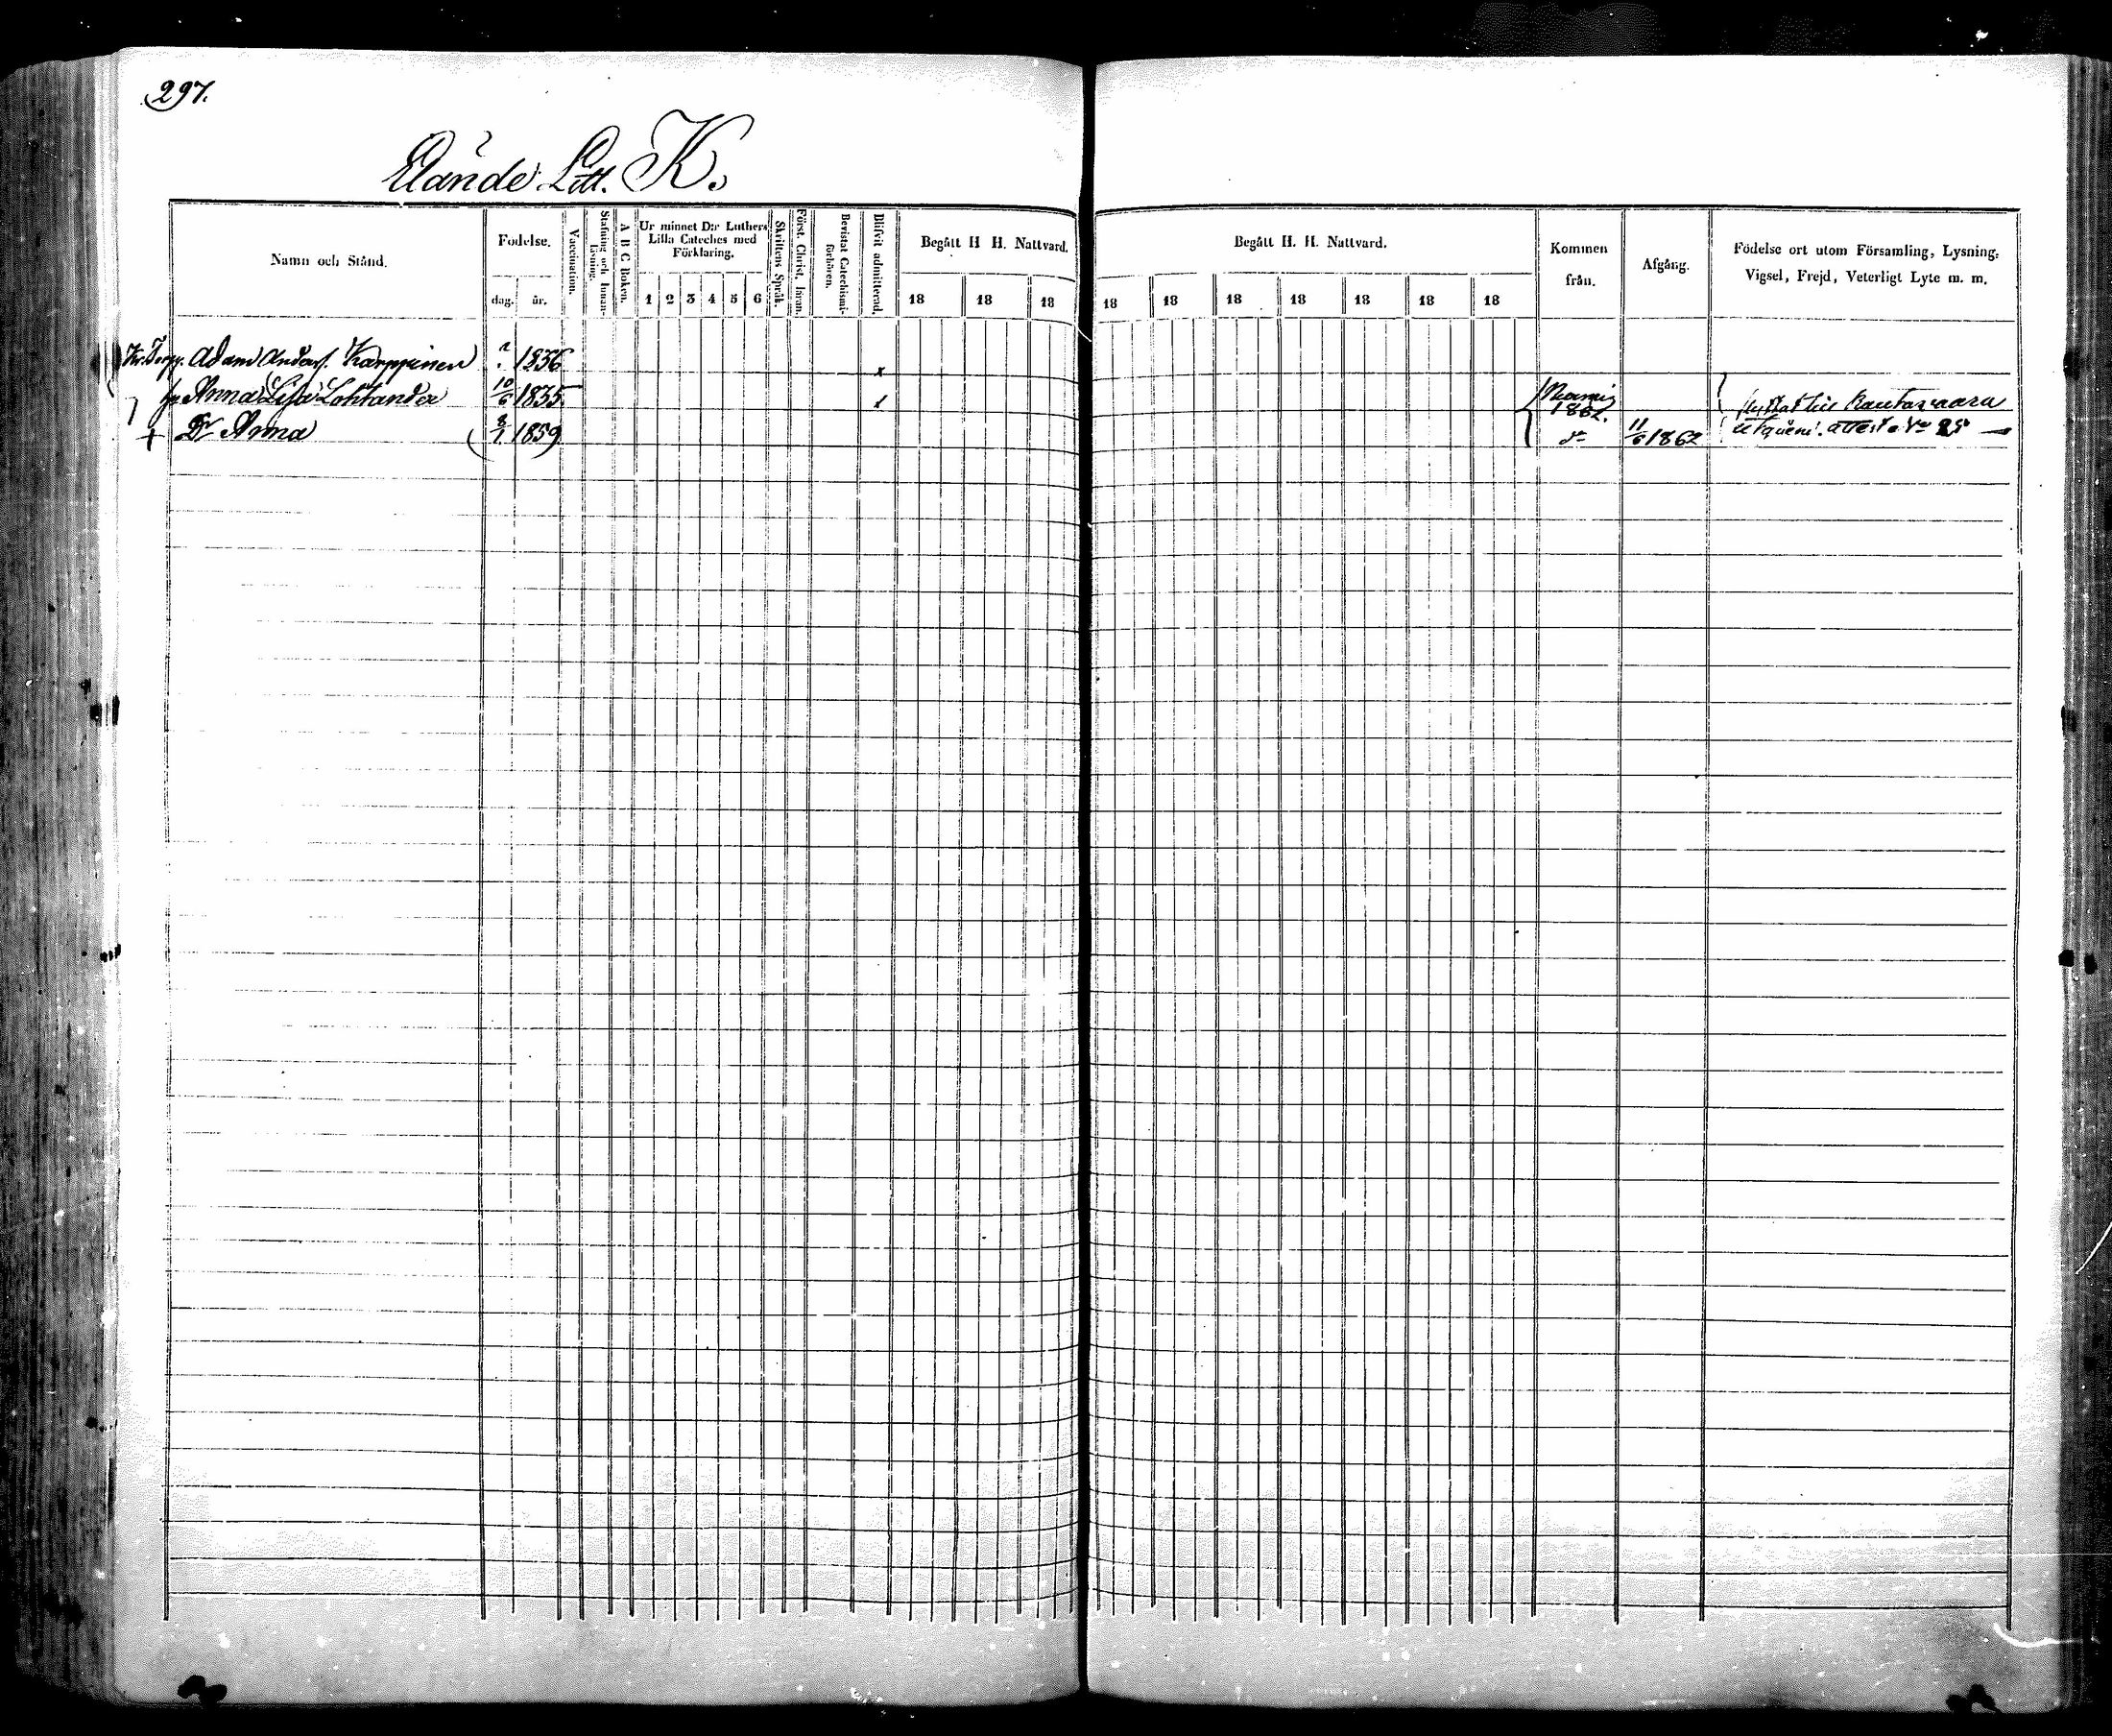 297.
Elände Litt. K.
Namn och Stånd.
Födelse.
dag. år.
Vaccination.
Stafning och Innan-läsning.
A B C Boken.
Ur minnet D:r Luthers
Lilla Cateches med
Förklaring.
1 2 3 4 5 6
Skriftens Språk.
Först. Christ. läran.
Bevistat Catechismi-förhören.
Blifvit admitterad.
Begått H H. Nattvard.
18 18 18
Begått H. H. Nattvard.
18 18 18 18 18 18 18
Kommen
från.
Afgång.
Födelse ort utom Församling, Lysning,
Vigsel, Frejd, Veterligt Lyte m. m.
Adam Anders. Karppinen 1836 x
Anna Lisa Lohtander 10/6 1835 x 1862 flyttat till Rautavaara
+ Dr Anna 1859 do 11/6 1862 attest No 25